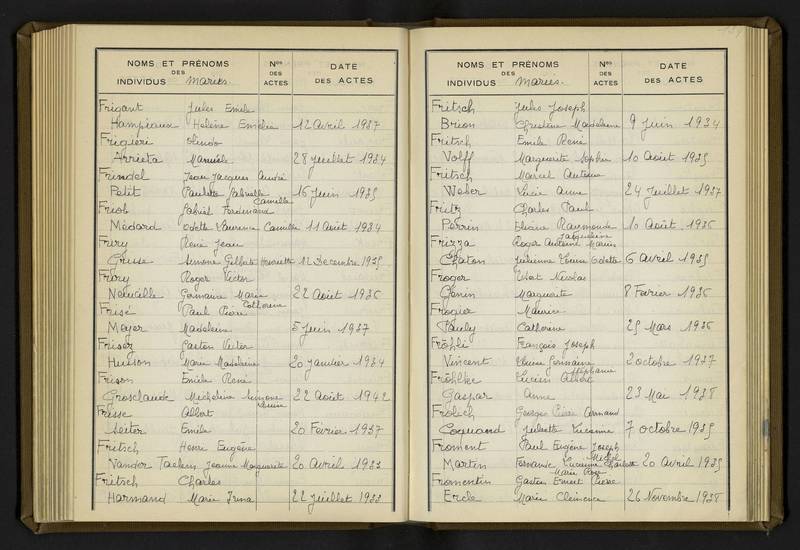 NOMS ET PRÉNOMS DES INDIVIDUS mariés. Nos DES ACTES DATE DES ACTES
Frisant Jules Emile
Hampiaux Hélène Emelie 12 Avril 1937
Frigieri Olindo
Arrieta Manuela 28 juillet 1934
Frindel Jean Jacques André
Petit Paulette Gabrielle 16 Juin 1935
Camille
Friob Gabriel Ferdinand
Médard Odette Laurence Camille 11 Août 1934
Friry René Jean
Grisse Simone Gilberte Henriette 12 Décembre 1935
Friry Roger Victor
Neuville Germaine Marie 22 Août 1936
Catherine
Frisé Paul Pierre
Meyer Madeleine 5 Juin 1937
Friser Gaston Victor
Husson Marie Madeleine 20 janvier 1934
Frison Emile René
Grosclaude Micheline Simone 22 Août 1942
Louise
Frisse Albert
Seiter Emile 20 Février 1937
Fritsch Henri Eugène
Vander Taelen Jeanne Marguerite 20 Avril 1933
Fritsch Charles
Harmand Marie Irma 22 juillet 1933
NOMS ET PRÉNOMS DES INDIVIDUS mariés. Nos DES ACTES DATE DES ACTES
Fritsch Jules Joseph
Brion Christine Magdeleine 9 juin 1934
Fritsch Emile René
Volff Marguerite Sophie 10 Août 1935
Fritsch Marcel Antoine
Weber Lucie Anne 24 Juillet 1937
Fritz Charles Paul
Perrin Eliane Raymonde 10 Août 1936
Jacqueline
Frizza Roger Antoine Marius
Chaton Julienne Louise Odette 6 Avril 1935
Froger Nicolas
Génin Marguerite 8 Février 1936
Frogier Maurice
Pauly Catherine 25 Mars 1936
Fröhli François Joseph
Vincent Germaine 2 octobre 1937
Stéphanie
Fröhlke Lucien Albert
Gaspar Anne 23 Mai 1938
Frolich Georges Pierre Armand
Coquard Juliette Lucienne 7 octobre 1935
Froment Paul Eugène Joseph
Michel
Martin Fernande Lucienne Charlotte 20 Avril 1935
Marie Rose
Fromentin Gaston Ernest Pierre
Ercle Marie Clémence 26 Novembre 1938